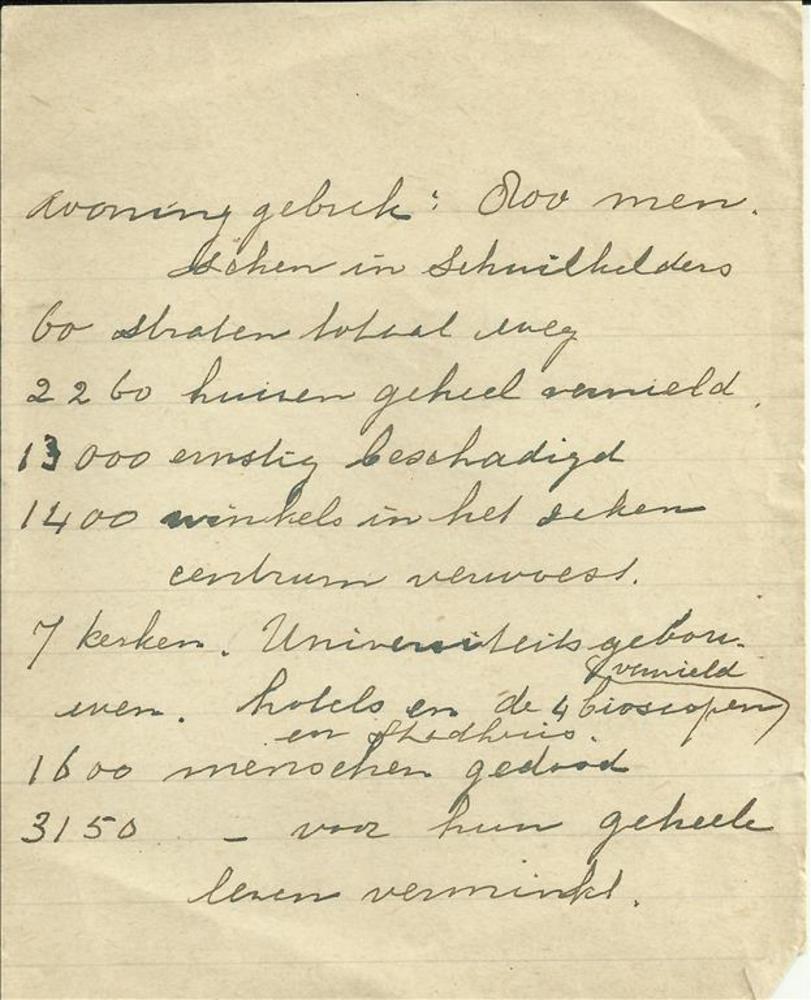 woninggebrek: 800 men.
schen in schuilkelders
60 straten totaal weg
2260 huisen geheel vernield.
13000 ernstig beschadigd
1400 winkels in het
centrum verwoest.
7 kerken. Universiteitsgebou-
wen. hotels en de 4 bioscopen
vernield
en Stadhuis.
1600 menschen gedood
3150 - voor hun geheele
leven verminkt.